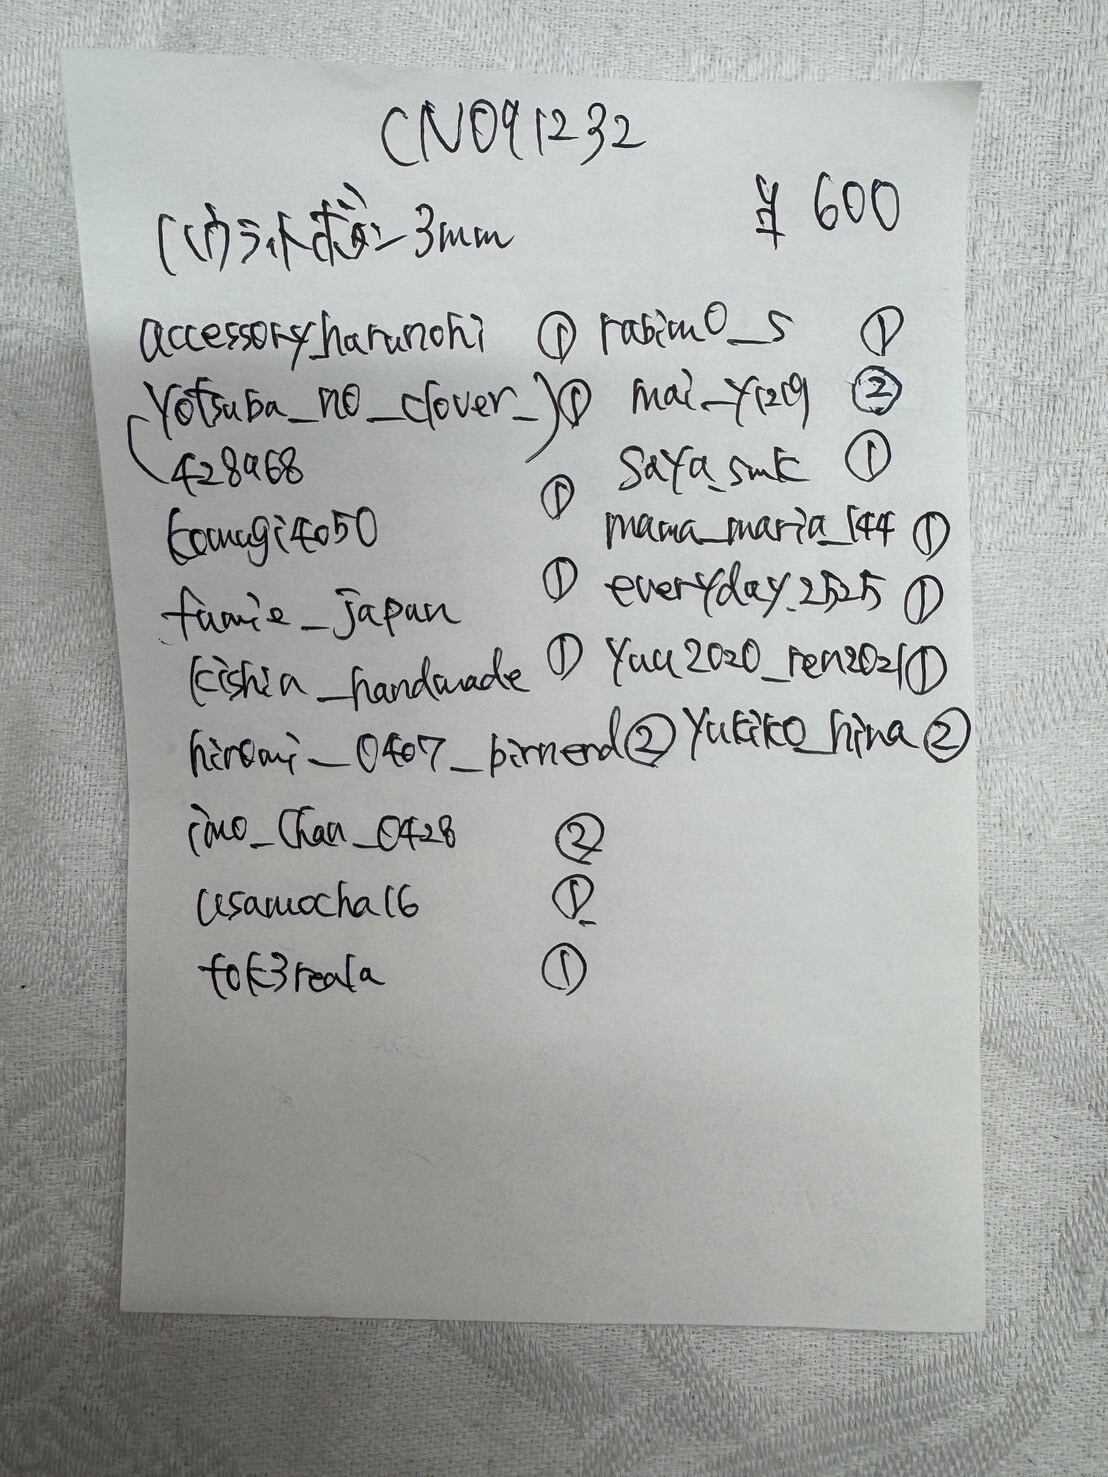 CN091232
¥ 600
ハウライトボタン3mm
accessory_harunohi ①
yotsuba_no_clover_ ①
428968
komugi4050 ①
famie_japan ①
kishia_handmade ①
hiromi_0407_birnend ②
imo_chan_0428 ②
usamocha16 ①
tok3reala ①
rabim0_s ①
mai_y1219 ②
saya_smk ①
mama_maria_144 ①
everyday.2525 ①
yuu2020_ren2021 ①
yukiko_hina ②